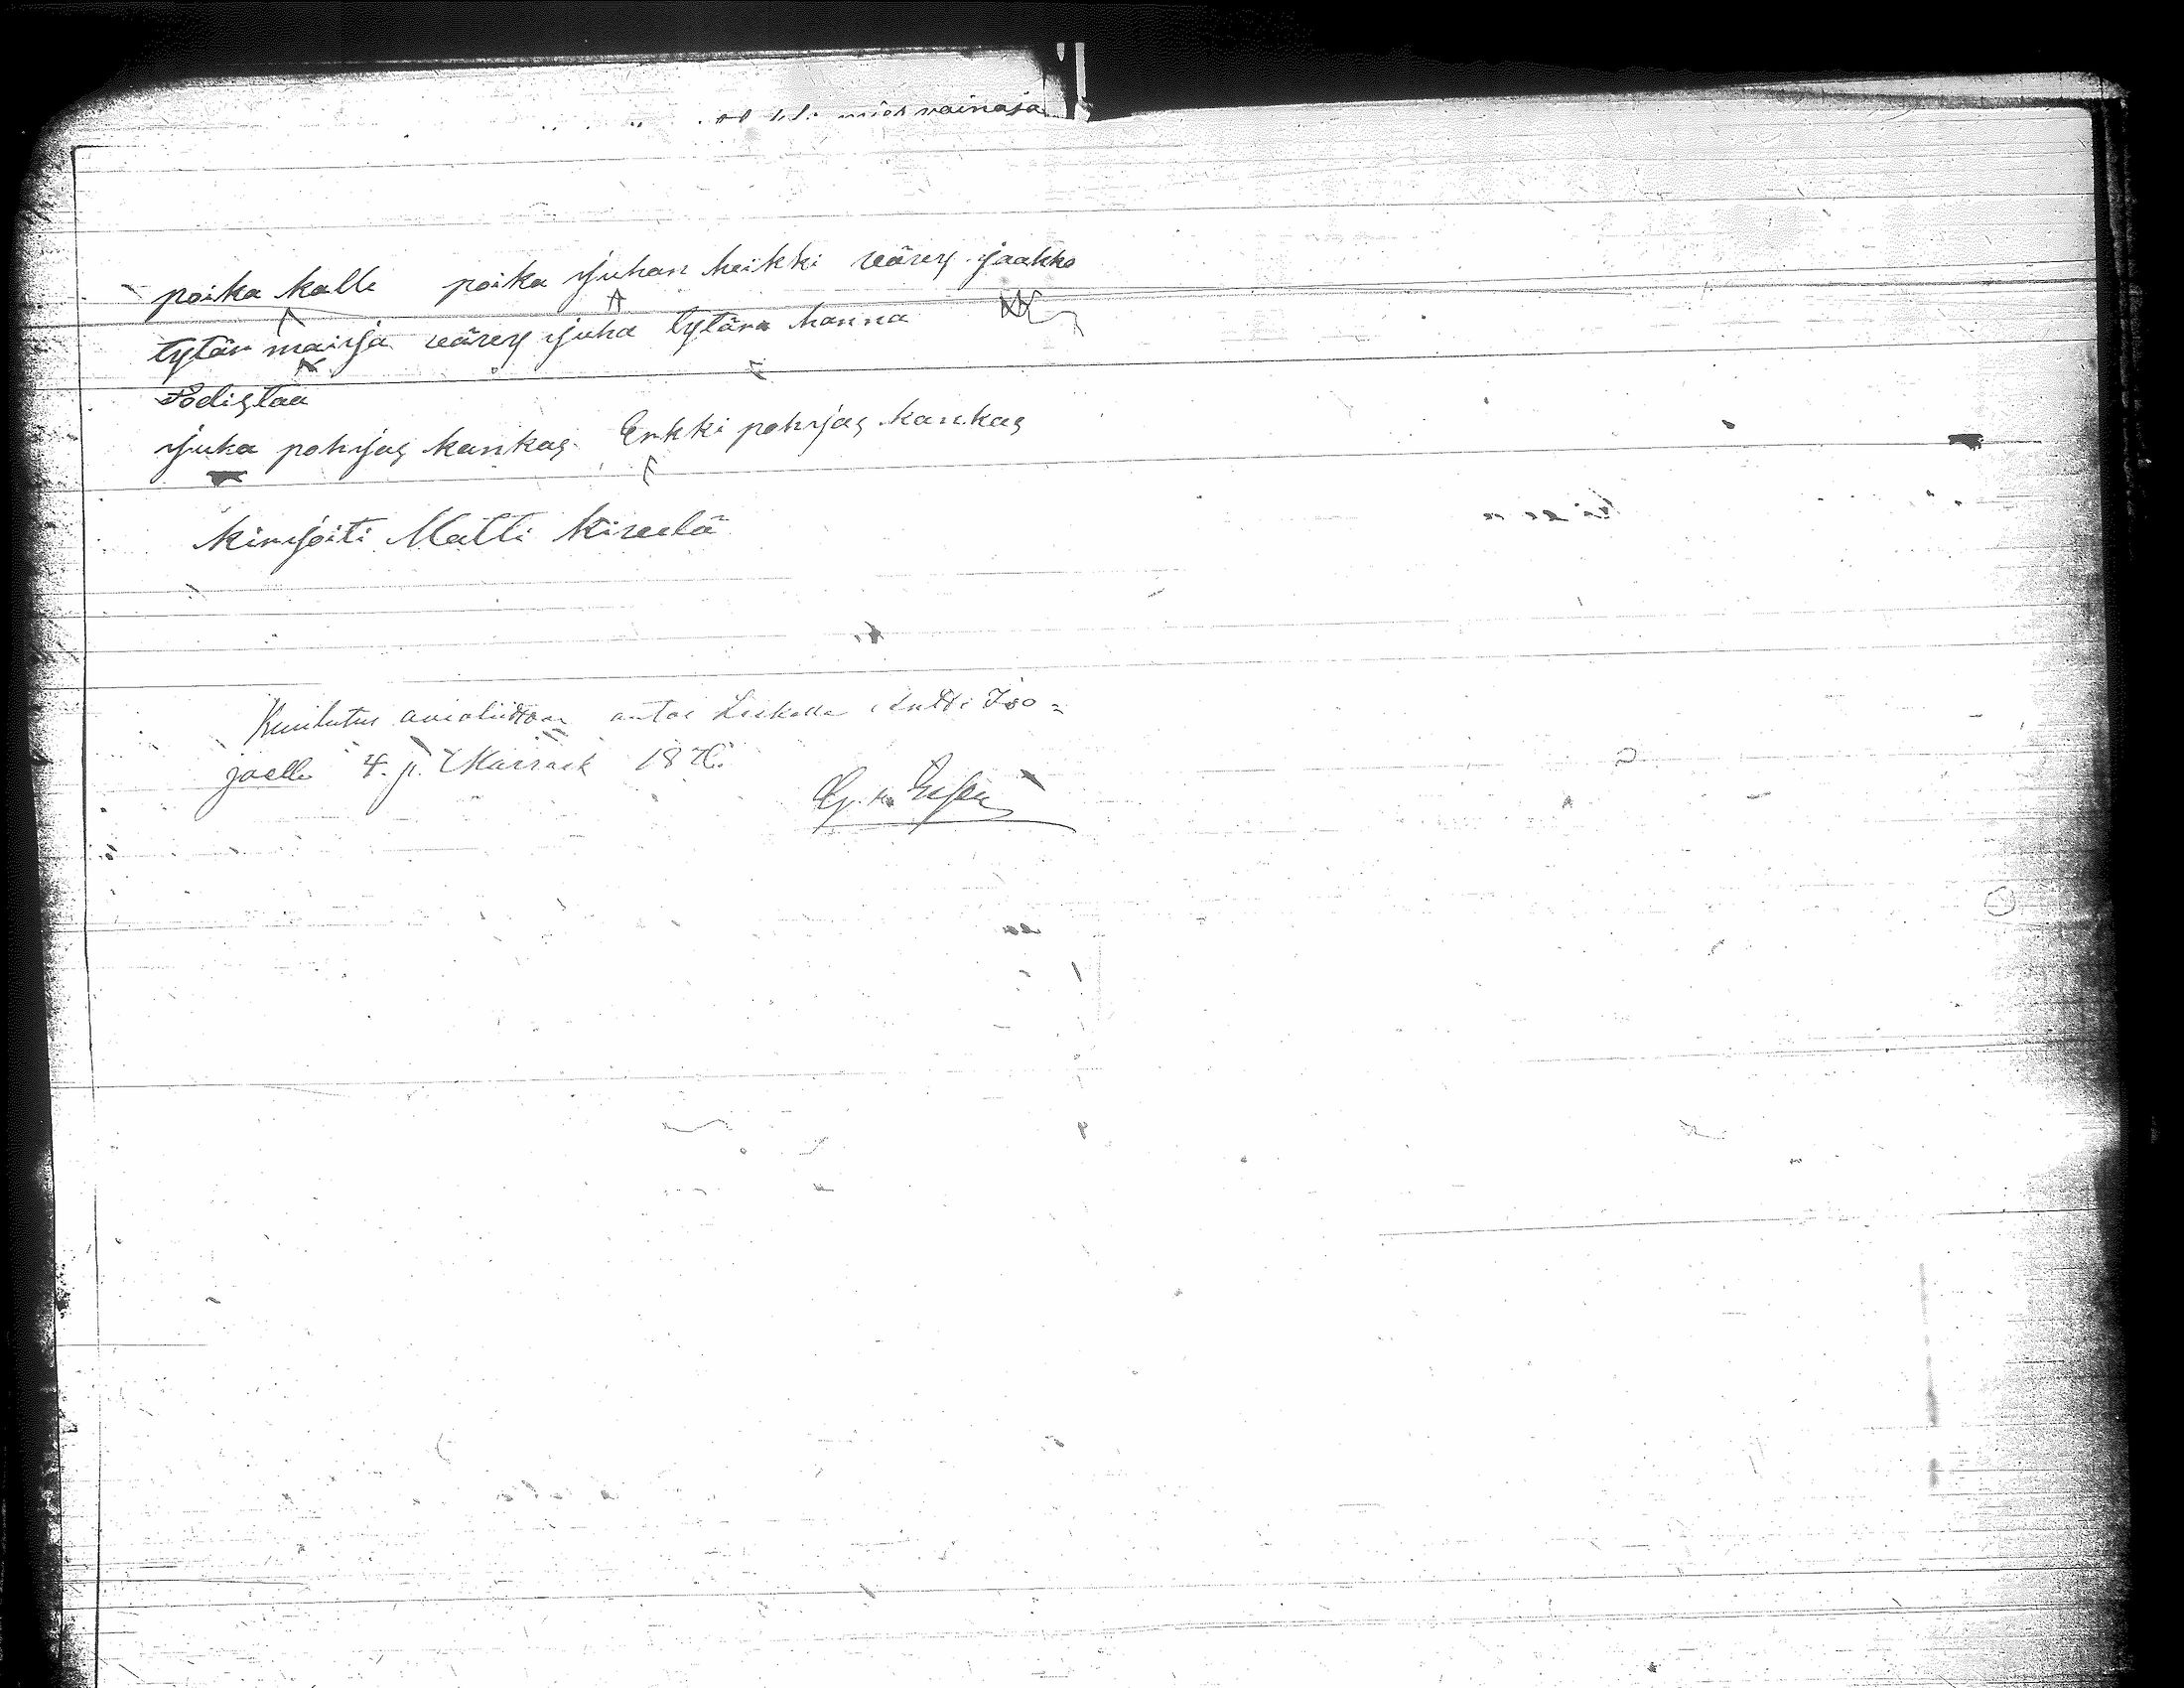 mies vainaja
poika kalle poika juhan heikki vävy jaakko
tytär maija vävy juha tytär hanna
Todistaa
juha pohjas kankas Erkki pohjas kankas
kirjoiti Matti Kivelä
Kuulutus avioliittoon antoi Leskelle Antti Iso=
joelle 4. p. Marrask 18